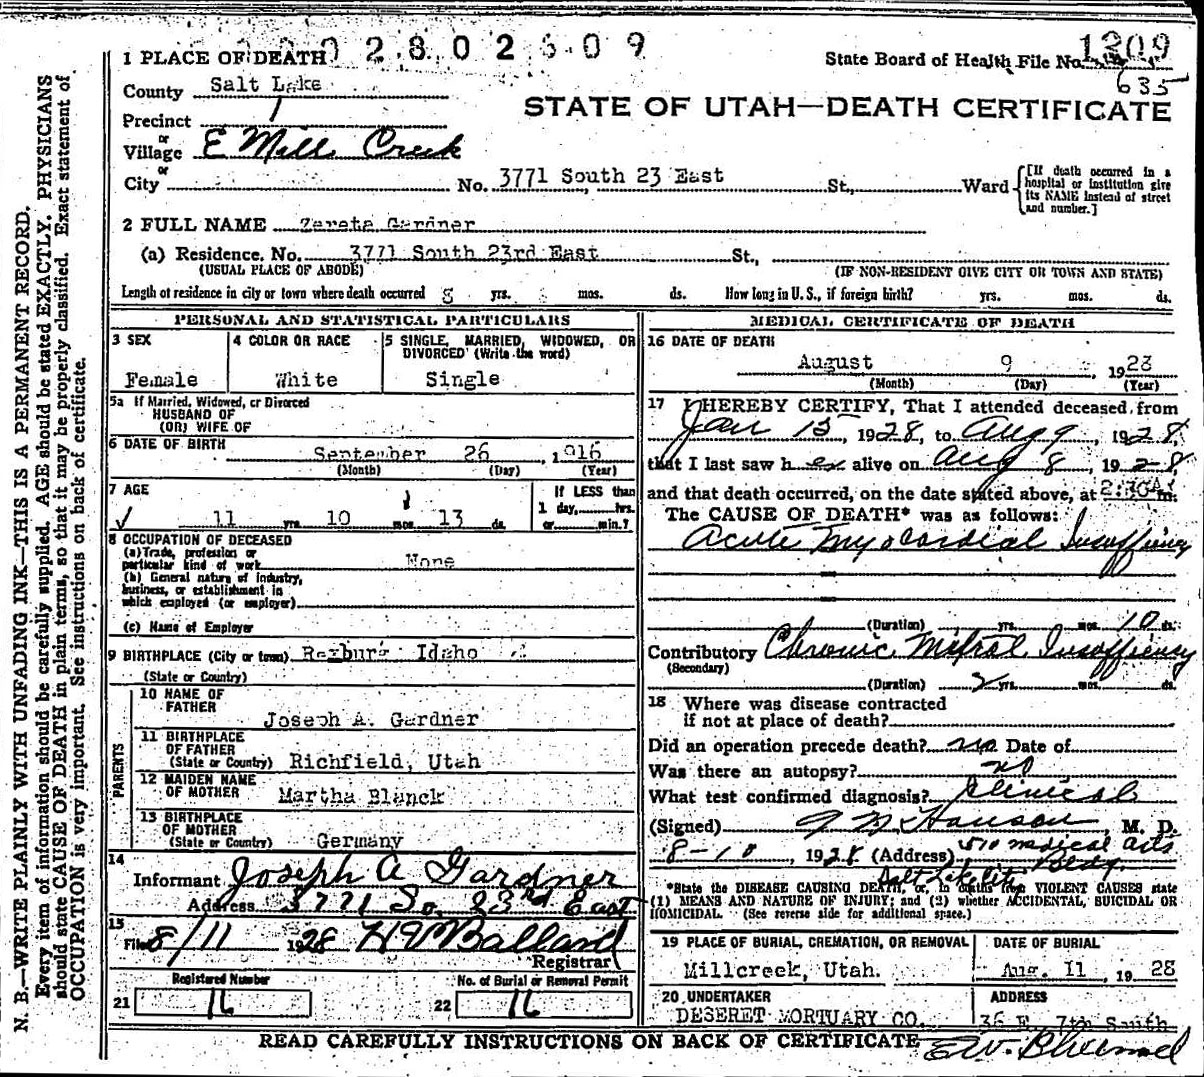 N. B.—WRITE PLAINLY WITH UNFADING INK—THIS IS A PERMANENT RECORD.
Every item of information should be carefully supplied. AGE should be stated EXACTLY. PHYSICIANS
should state CAUSE OF DEATH in plain terms, so that it may be properly classified. Exact statement of
OCCUPATION is very important. See instructions on back of certificate.
2 8 0 2 6 0 9
1 PLACE OF DEATH
State Board of Health File No. 1209
635
County Salt Lake
STATE OF UTAH—DEATH CERTIFICATE
Precinct 1
or
Village E Mill Creek
or
City No. 3771 South 23 East St., Ward
[If death occurred in a
hospital or institution give
its NAME instead of street
and number.]
2 FULL NAME Zereta Gardner
(a) Residence. No. 3771 South 23rd East St.,
(USUAL PLACE OF ABODE) (IF NON-RESIDENT GIVE CITY OR TOWN AND STATE)
Length of residence in city or town where death occurred 8 yrs. mos. ds. How long in U. S., if foreign birth? yrs. mos. ds.
PERSONAL AND STATISTICAL PARTICULARS
3 SEX
Female
4 COLOR OR RACE
White
5 SINGLE, MARRIED, WIDOWED, OR
DIVORCED (Write the word)
Single
5a If Married, Widowed, or Divorced
HUSBAND OF
(OR) WIFE OF
6 DATE OF BIRTH
September 26, 1916
(Month) (Day) (Year)
7 AGE
11 yrs 10 mos 13 ds.
If LESS than
1 day, hrs.
or min.?
8 OCCUPATION OF DECEASED
(a) Trade, profession or
particular kind of work None
(b) General nature of industry,
business, or establishment in
which employed (or employer)
(c) Name of Employer
9 BIRTHPLACE (City or town) Rexburg Idaho
(State or Country)
PARENTS
10 NAME OF
FATHER
Joseph A. Gardner
11 BIRTHPLACE
OF FATHER
(State or Country) Richfield, Utah
12 MAIDEN NAME
OF MOTHER
Martha Blanck
13 BIRTHPLACE
OF MOTHER
(State or Country) Germany
14
Informant Joseph A Gardner
Address 3771 So. 23rd East
15
Filed 8/11 1928 H E Ballard
Registrar
Registered Number No. of Burial or Removal Permit
21 16 22 16
MEDICAL CERTIFICATE OF DEATH
16 DATE OF DEATH
August 9, 1928
(Month) (Day) (Year)
17 I HEREBY CERTIFY, That I attended deceased from
Jan 15, 1928, to Aug 9, 1928,
that I last saw h er alive on Aug 8, 1928
and that death occurred, on the date stated above, at 2:30A m.
The CAUSE OF DEATH* was as follows:
Acute Myocardial Insufficiency
(Duration) yrs. mos. 10 ds.
Contributory Chronic Mitral Insufficiency
(Secondary)
(Duration) 2 yrs. mos. ds.
18 Where was disease contracted
if not at place of death?
Did an operation precede death? no Date of
Was there an autopsy? no
What test confirmed diagnosis? Clinical
(Signed) G N Hanson, M. D.
8-10, 1928 (Address) 510 Medical Arts
Bldg.
Salt Lake City
*State the DISEASE CAUSING DEATH, or, in deaths from VIOLENT CAUSES state
(1) MEANS AND NATURE OF INJURY; and (2) whether ACCIDENTAL, SUICIDAL OR
HOMICIDAL. (See reverse side for additional space.)
19 PLACE OF BURIAL, CREMATION, OR REMOVAL
Millcreek, Utah.
DATE OF BURIAL
Aug. 11, 1928
20 UNDERTAKER
DESERET MORTUARY CO.
ADDRESS
36 E. 7th South
READ CAREFULLY INSTRUCTIONS ON BACK OF CERTIFICATE